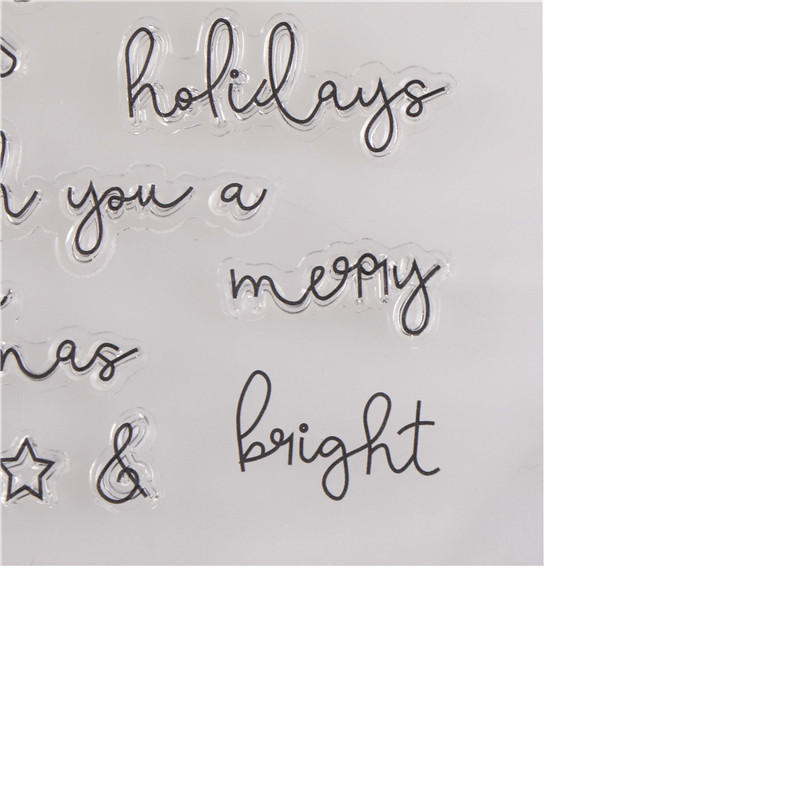 holidays
you a
merry
&
bright